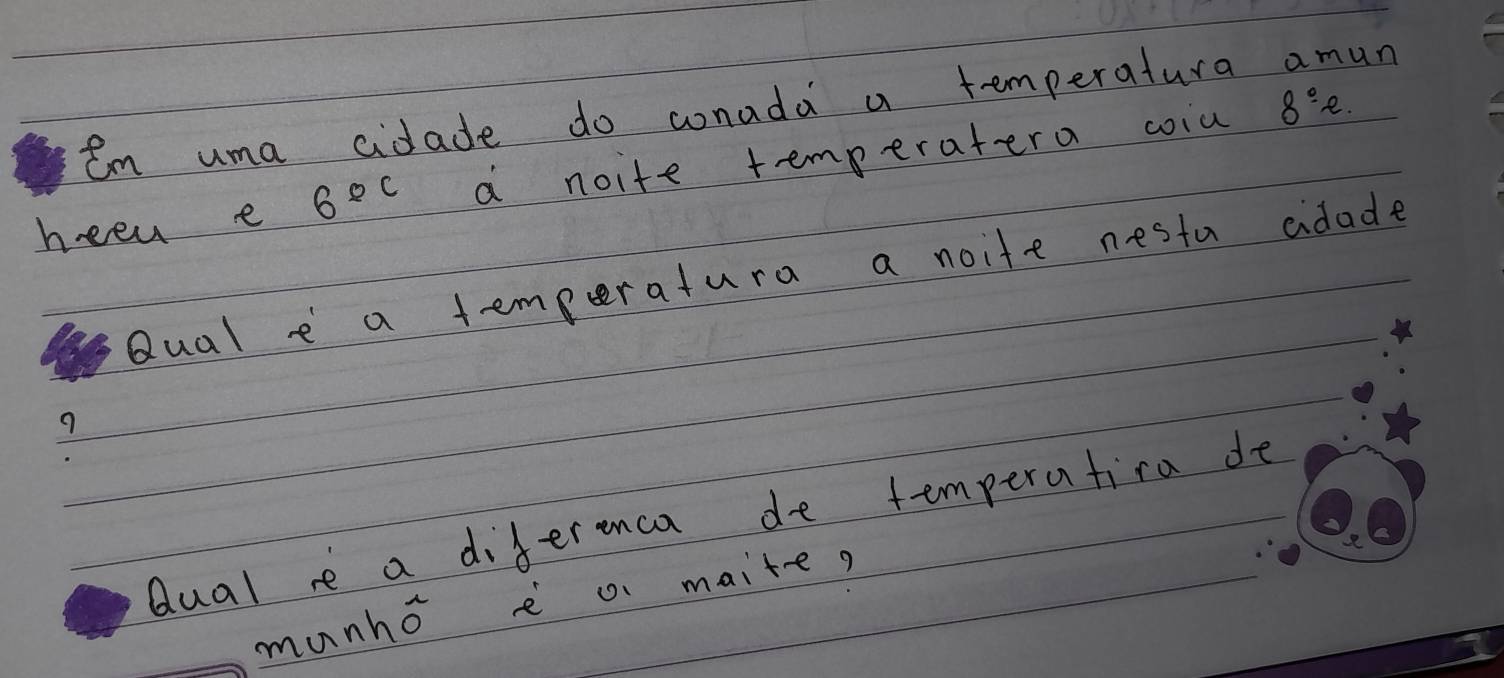 Em uma cidade do conadá a temperatura amun
heeu e 6ºc á noite temperatera coiu 8°e.
Qual é a temperatura a noite nesta cidade
?
Qual é a diferenca de temperatira de
manhõ é a maite?